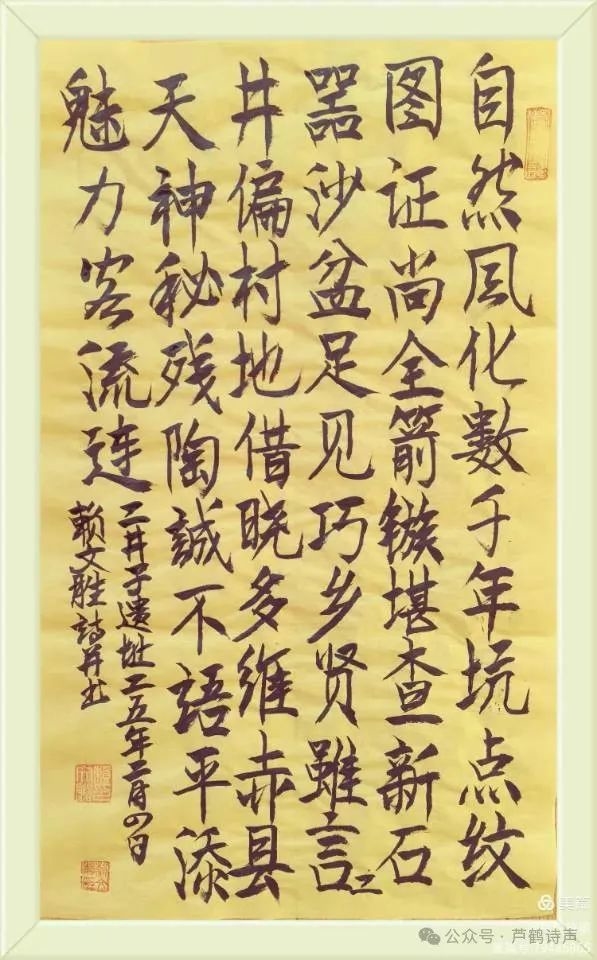 自然风化數千年坑点纹
图证尚全箭镞堪查新石
噐沙盆足见巧乡贤雖言二
井偏村地借晓多维赤县
天神秘残陶誠不語平添
魅力客流连
二井子遗址二五年二月四日
赖文胜詩并书
美篇
公众号·芦鹤诗声